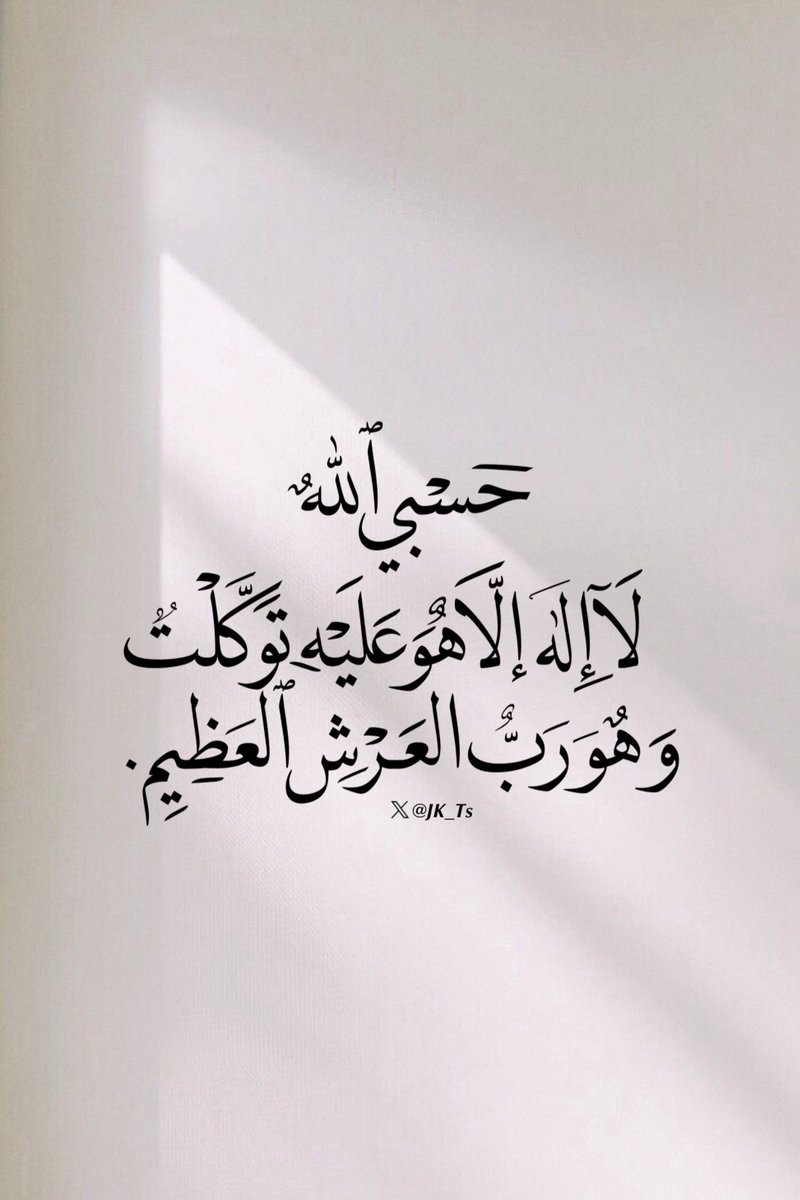 حَسْبِي ٱللهُ
لَآ إِلٰهَ إلَّا هُوَ عَلَيْهِ تَوَكَّلْتُ
وَهُوَ رَبُّ العَرْشِ ٱلعَظِيمِ.
𝕏 @JK_Ts